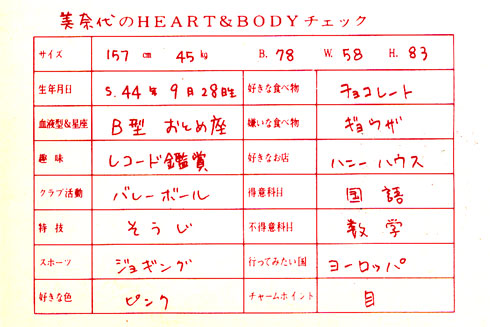 美奈代のHEART&BODYチェック
サイズ 157 cm 45 kg B. 78 W. 58 H. 83
生年月日 S. 44年 9月28日生 好きな食べ物 チョコレート
血液型&星座 B型 おとめ座 嫌いな食べ物 ギョウザ
趣味 レコード鑑賞 好きなお店 ハニーハウス
クラブ活動 バレーボール 得意科目 国語
特技 そうじ 不得意科目 数学
スポーツ ジョギング 行ってみたい国 ヨーロッパ
好きな色 ピンク チャームポイント 目